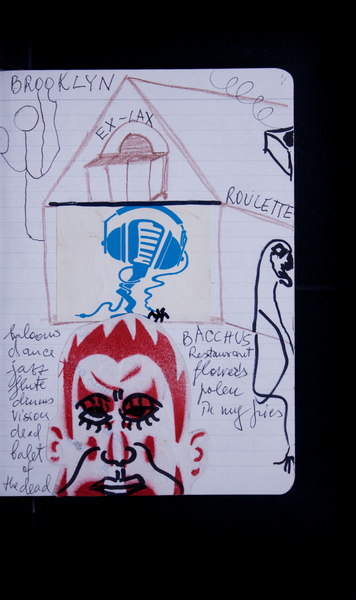 BROOKLYN
EX-LAX
ROULETTE
baloons
dance
jazz
flute
drums
vision
dead
balet
of
the dead
BACCHUS
Restaurant
flowers
polen
in my fries